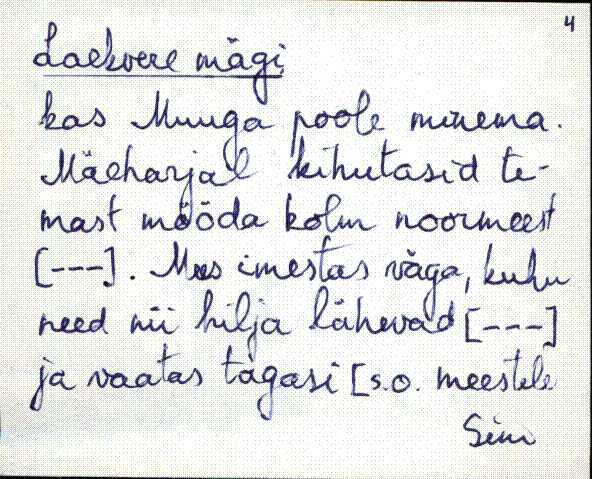 4
Laekvere mägi
kas Muuga poole minema.
Mäeharjal kihutasid te-
mast mööda kolm noormeest
[---]. Mees imestas väga, kuhu
need nii hilja lähevad [---]
ja vaatas tagasi [s.o. meestele